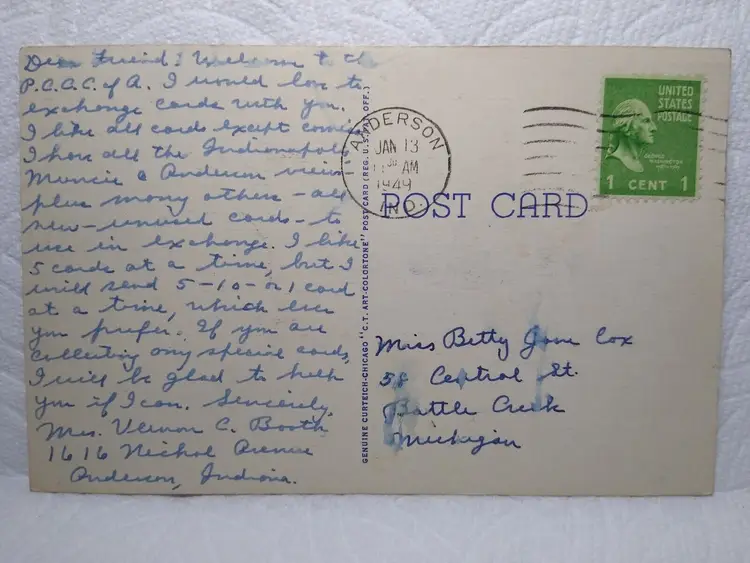 Dear Friend: Welcome to the
P.C.C.C. of A. I would love to
exchange cards with you.
I like all cards except comic
I have all the Indianapolis
Muncie & Anderson views
plus many others - all
new-unused cards - to
use in exchange. I like
5 cards at a time, but I
will send 5-10- or 1 card
at a time, which ever
you prefer. If you are
collecting any special cards,
I will be glad to help
you if I can. Sincerely,
Mrs. Vernon C. Booth
1616 Nichol Avenue
Anderson, Indiana.
GENUINE CURTEICH-CHICAGO "C.T. ART-COLORTONE" POST CARD (REG. U.S. PAT. OFF.)
ANDERSON
JAN 13
AM
1949
IND.
UNITED
STATES
POSTAGE
GEORGE
WASHINGTON
1 CENT 1
POST CARD
Miss Betty Jane Cox
58 Central St.
Battle Creek
Michigan